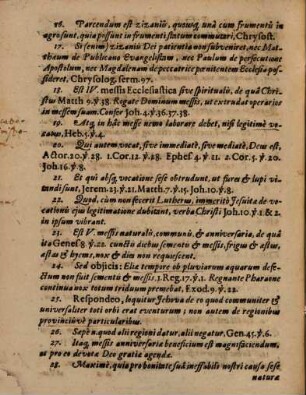 16. Parcendum est zizaniis, quousq; unà cum frumentis in
agro sunt, quia possunt in frumenti statum commutari, Chrysost.
17. Si (enim) zizanis Dei patientia non subveniret, nec Mat-
thæum de Publicano Evangelistam, nec Paulum de persecutore
Apostolum, nec Magdalenam de peccatrice pœnitentem Ecclesia pos-
sideret. Chrysolog. serm. 97.
18. Est IV. messis Ecclesiastica sive spiritualis, de quâ Chri-
stus Matth 9. ℣. 38. Rogate Dominum messis, ut extrudat operarios
in messem suam. Confer Joh. 4 ℣. 36. 37. 38.
19. Atq; in hâc messe nemo laborare debet, nisi legitimè vo-
catus, Heb. 5. ℣. 4.
20. Qui autem vocat, sive immediatè, sive mediatè, Deus est,
Actor. 20. ℣. 28. 1. Cor. 12. ℣. 28. Ephes. 4. ℣. 11. 2. Cor. 5. ℣. 20.
Joh. 16. ℣. 8.
21. Et qui absq; vocatione sese obtrudunt, ut fures & lupi vi-
tandi sunt, Jerem. 23. ℣. 21. Matth. 7. ℣. 15. Joh. 10. ℣. 8.
22. Quod, cum non fecerit Lutherus, immeritò Jesuitæ de vo-
cationis ejus legitimatione dubitant, verba Christi Joh. 10. ℣. 1. & 2.
in ipsum vibrant.
23. Est V. messis naturalis, communis, & anniversaria, de quâ
ita Genes. 8. ℣. 22. cunctis diebus sementis & messis, frigus & æstus,
æstas & hyems, nox & dies non requiescent.
24. Sed objicis: Eliæ tempore ob pluviarum aquarum defe-
ctum non fuit sementis & messis 1. Reg. 17. ℣. 1. Regnante Pharaone
continua nox totum triduum premebat, Exod. 9. ℣. 23.
25. Respondeo, loquitur Jehova de eo quod communiter &
universaliter toti orbi erat eventurum; non autem de regionibus
provinciisve particularibus.
26. Sepè n. quod alii regioni datur, alii negatur, Gen. 45. ℣. 6.
27. Itaq; messis anniversaria beneficium est magnifaciendum,
ac pro eo devota Deo gratia agenda.
28. Maximè, quia pro bonitate suâ ineffabili nostri causâ sese
naturæ